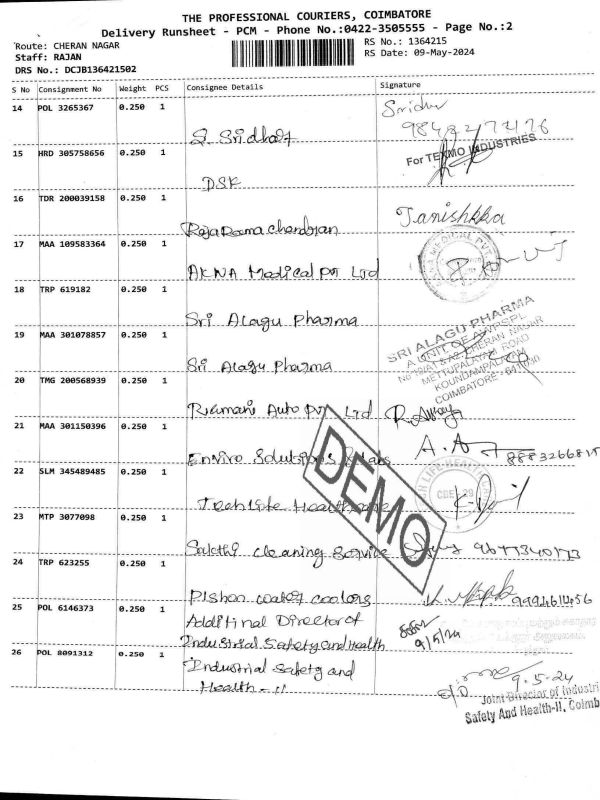 THE PROFESSIONAL COURIERS, COIMBATORE
Delivery Runsheet - PCM - Phone No.:0422-3505555 - Page No.:2
Route: CHERAN NAGAR
RS No.: 1364215
Staff: RAJAN
RS Date: 09-May-2024
DRS No.: DCJB136421502
S No Consignment No Weight PCS Consignee Details Signature
14 POL 3265367 0.250 1 S. Sridhar Sridhar
15 HRD 305758656 0.250 1 DSK For TEXMO INDUSTRIES
16 TDR 200039158 0.250 1 Raja Rama chandran Tanishkka
17 MAA 109583364 0.250 1 AKNA Medical Pvt Ltd
18 TRP 619182 0.250 1 Sri Alagu Pharma
SRI ALAGU PHARMA
A UNIT OF AWPSPL
CHERAN NAGAR
METTUPALAYAM ROAD
KOUNDAMPALAYAM
COIMBATORE - 641030
19 MAA 301078857 0.250 1 Sri Alagu Pharma
20 TMG 200568939 0.250 1 Ramani Auto Pvt Ltd
21 MAA 301150396 0.250 1 Enviro Solutions & Labs
DEMO
22 SLM 345489485 0.250 1 Techlife Healthcare
23 MTP 3077098 0.250 1 Sakthi cleaning Service
24 TRP 623255 0.250 1 Pishon water coolers
25 POL 6146373 0.250 1 Additinal Director of
Industrial Safety and Health 9/5/24
26 POL 8091312 0.250 1 Industrial Safety and
Health - II 9.5.24
Joint Director of Industri
Safety And Health-II, Coimb